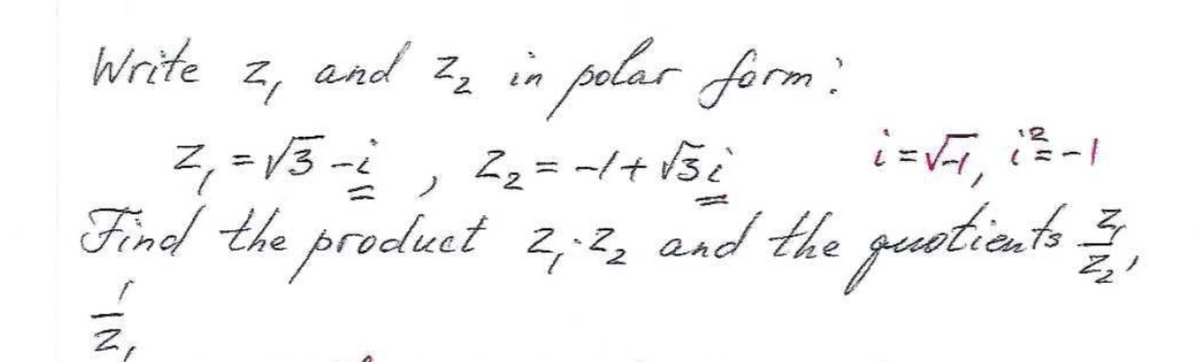 Write z₁ and z₂ in polar form:
z₁ = √3 - i , z₂ = -1 + √3 i    i = √-1, i² = -1
Find the product z₁·z₂ and the quotients z₁/z₂,
1/z₁